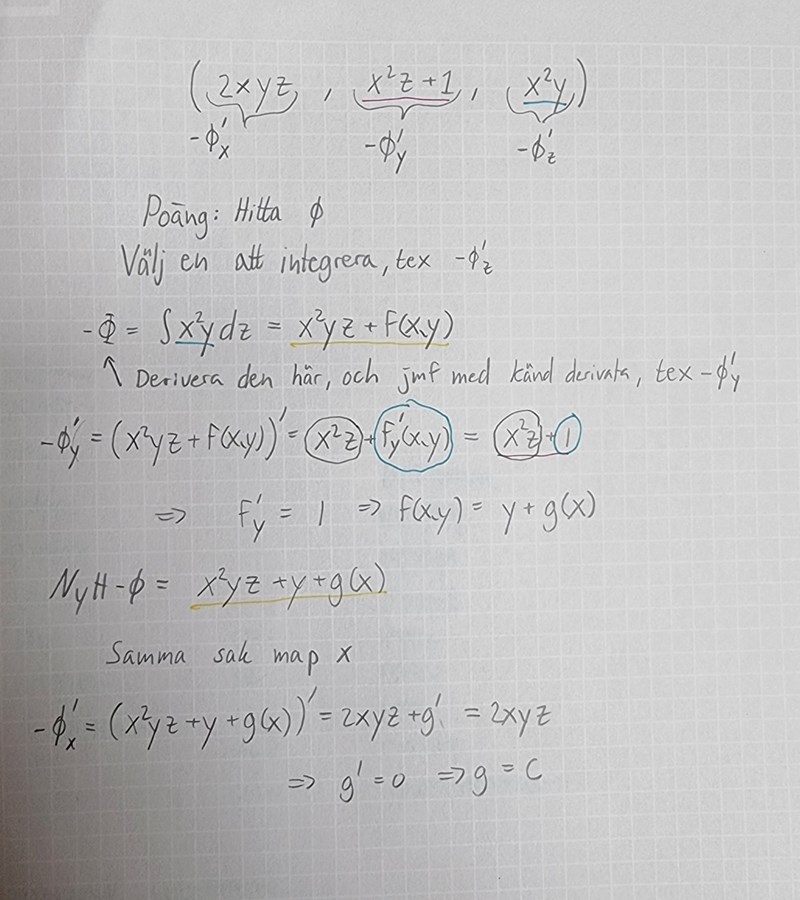 (2xyz , x²z+1 , x²y)
-ϕ'x -ϕ'y -ϕ'z
Poäng: Hitta ϕ
Välj en att integrera, tex -ϕ'z
-Φ = ∫x²y dz = x²yz + f(x,y)
↑ Derivera den här, och jmf med känd derivata, tex -ϕ'y
-ϕ'y = (x²yz + f(x,y))' = x²z + f'y(x,y) = x²z + 1
=> f'y = 1 => f(x,y) = y + g(x)
Nytt -ϕ = x²yz + y + g(x)
Samma sak map x
-ϕ'x = (x²yz + y + g(x))' = 2xyz + g' = 2xyz
=> g' = 0 => g = C